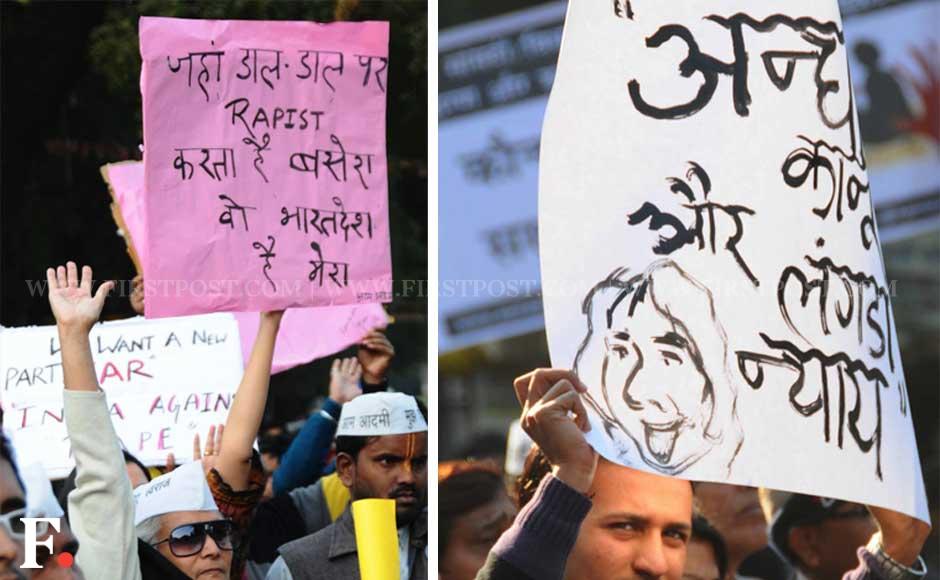 जहां डाल-डाल पर
RAPIST
करता है बसेरा
वो भारतदेश
है मेरा
WE WANT A NEW
PART
WAR
INDIA AGAINST
RAPE
आम आदमी
मुझे
स्वराज
" अन्धा
कानून
और
लंगडा
न्याय "
WWW.FIRSTPOST.COM | WWW.FIRSTPOST.COM | WWW.FIRSTPOST.COM
F.